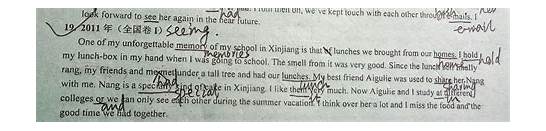 look forward to see her again in the near future.
had
From then on, we've kept touch with each other through e-mails. I
e-mail
19. 2011 年 (全国卷 I)
seeing.
One of my unforgettable memory of my school in Xinjiang is that lunches we brought from our homes. I hold
memories
held
my lunch-box in my hand when I was going to school. The smell from it was very good. Since the lunch finally
rang, my friends and me met under a tall tree and had our lunches. My best friend Aigulie was used to share her Nang
had
lunch
sharing
with me. Nang is a specially kind of cake in Xinjiang. I like them very much. Now Aigulie and I study at different
special
it
in
colleges or we can only see each other during the summer vacation. I think over her a lot and I miss the food and the
and
good time we had together.